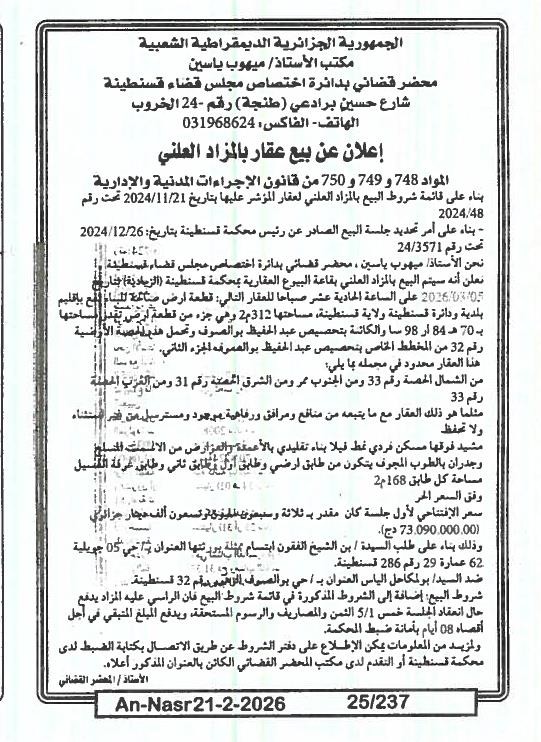 الجمهورية الجزائرية الديمقراطية الشعبية
مكتب الأستاذ/ ميهوب ياسين
محضر قضائي بدائرة اختصاص مجلس قضاء قسنطينة
شارع حسين برادعي (طنجة) رقم -24 الخروب
الهاتف- الفاكس: 031968624
إعلان عن بيع عقار بالمزاد العلني
المواد 748 و 749 و 750 من قانون الإجراءات المدنية والإدارية
بناء على قائمة شروط البيع بالمزاد العلني لعقار المؤشر عليها بتاريخ 2024/11/21 تحت رقم
2024/48
- بناء على أمر تحديد جلسة البيع الصادر عن رئيس محكمة قسنطينة بتاريخ: 2024/12/26
تحت رقم 24/3571
نحن الأستاذ/ ميهوب ياسين ، محضر قضائي بدائرة اختصاص مجلس قضاء قسنطينة
نعلن أنه سيتم البيع بالمزاد العلني بقاعة البيوع العقارية بمحكمة قسنطينة (الزيادية) بتاريخ
2026/03/05 على الساعة الحادية عشر صباحا للعقار التالي: قطعة أرض صالحة للبناء تقع بإقليم
بلدية ودائرة قسنطينة ولاية قسنطينة، مساحتها 312م2 وهي جزء من قطعة أرض تقدر مساحتها
بـ 70 هـ 84 آر 98 سا والكائنة بتحصيص عبد الحفيظ بوالصوف وتحمل هذه الحصة الأرضية
رقم 32 من المخطط الخاص بتحصيص عبد الحفيظ بوالصوف الجزء الثاني.
هذا العقار محدود في مجمله بما يلي:
من الشمال الحصة رقم 33 ومن الجنوب ممر ومن الشرق الحصة رقم 31 ومن الغرب الحصة
رقم 33
مثلما هو ذلك العقار مع ما يتبعه من منافع ومرافق ورفاهية موجود ومسترسل من غير استثناء
ولا تحفظ
مشيد فوقها مسكن فردي نمط فيلا بناء تقليدي بالأعمدة والعوارض من الاسمنت المسلح
وجدران بالطوب المجوف يتكون من طابق أرضي وطابق أول وطابق ثاني وطابق غرفة الغسيل
مساحة كل طابق 168م2
وفق السعر الحر
سعر الإفتتاحي لأول جلسة كان مقدر بـ ثلاثة وسبعون مليون وتسعون ألف دينار جزائري
(73.090.000.00 دج).
وذلك بناء على طلب السيدة / بن الشيخ الفقون ابتسام العنوان بـ/ حي 05 جويلية
62 عمارة 29 رقم 286 قسنطينة.
ضد السيد/ بولمكاحل الياس العنوان بـ / حي بوالصوف رقم 32 قسنطينة.
شروط البيع: إضافة إلى الشروط المذكورة في قائمة شروط البيع فان الراسي عليه المزاد يدفع
حال انعقاد الجلسة خمس 5/1 الثمن والمصاريف والرسوم المستحقة، ويدفع المبلغ المتبقي في أجل
أقصاه 08 أيام بأمانة ضبط المحكمة.
ولمزيد من المعلومات يمكن الإطلاع على دفتر الشروط عن طريق الاتصال بكتابة الضبط لدى
محكمة قسنطينة أو التقدم لدى مكتب المحضر القضائي الكائن بالعنوان المذكور أعلاه.
الأستاذ / المحضر القضائي
An-Nasr21-2-2026 25/237